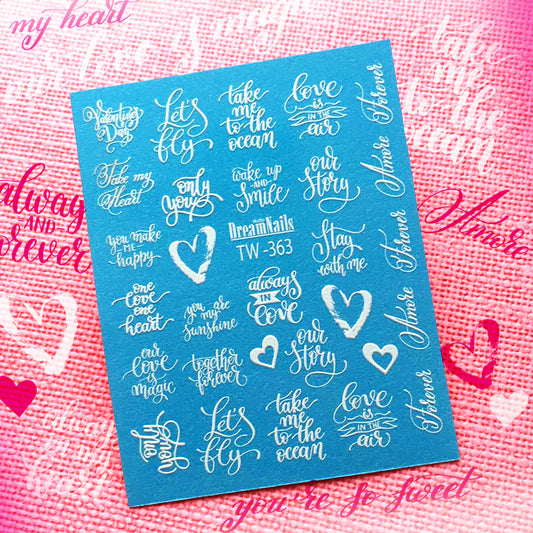 my heart
our love is magic
take
me
to the
ocean
always
AND
forever
Amore
always
in my
heart
you're so sweet
Valentine's
Day
Let's
fly
take
me
to the
ocean
love
is
IN THE
air
Forever
Take my
Heart
only
you
wake up
AND
Smile
our
Story
Amore
you make
ME
happy
Studio
DreamNails
TW -363
Stay
with me
Forever
one
love
one
heart
you are
my
sunshine
always
IN
love
our
Story
Amore
our
love
is
magic
together
forever
Amour
Let's
fly
take
me
to the
ocean
love
is
IN THE
air
Forever